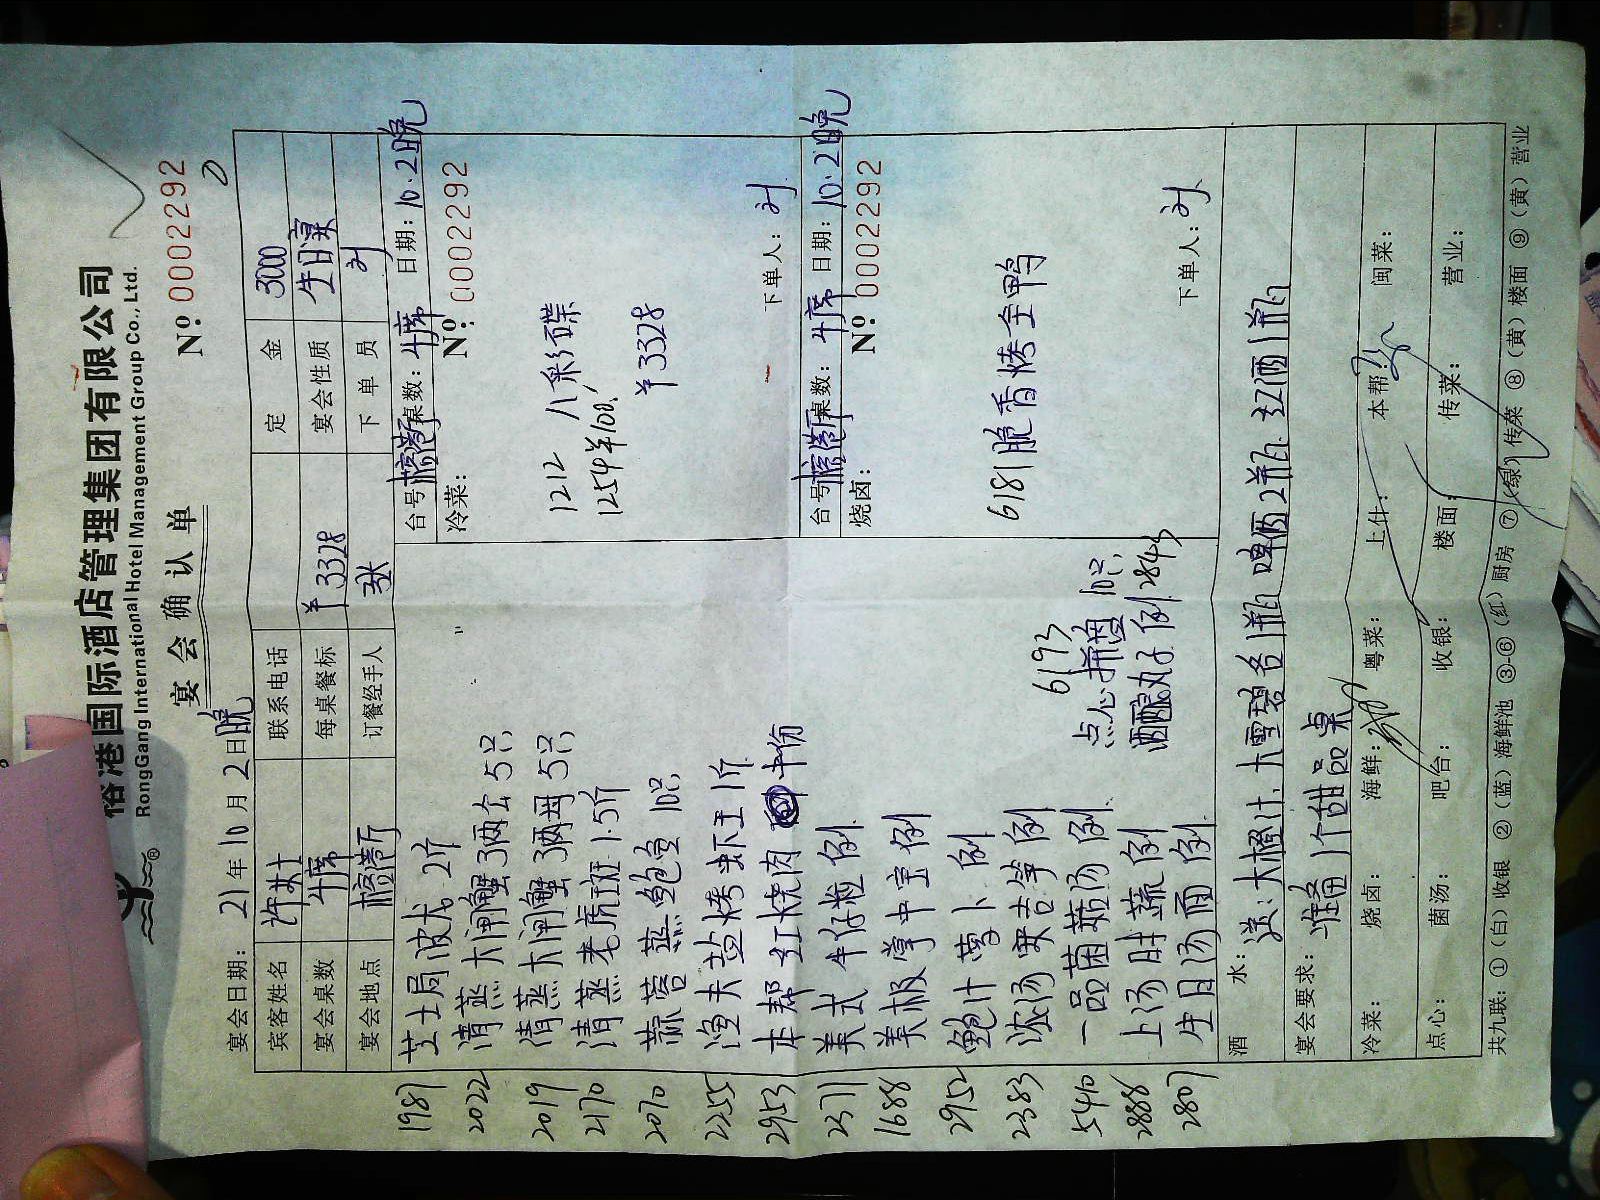 榕港国际酒店管理集团有限公司
RongGang International Hotel Management Group Co., Ltd.
宴会确认单
№ 0002292
宴会日期: 21年10月2日晚
宾客姓名 许女士 联系电话 定金 3000
宴会桌数 1席 每桌餐标 ¥3328 宴会性质 生日宴
宴会地点 榕港厅 订餐经手人 张 下单员 刘
1987 芝士局波龙 2斤
2022 清蒸大闸蟹3两公 5只
2019 清蒸大闸蟹3两母 5只
2170 清蒸老虎斑 1.5斤
2070 蒜蓉蒸鲍鱼 10只
2255 渔夫盐烤虾王 1斤
2953 本帮红烧肉 半份
2371 美式牛仔粒 例
1688 美极掌中宝 例
2952 鲍汁萝卜 例
2383 浓汤 例
5410 一品菌菇汤 例
2888 上汤时蔬 例
2807 生日汤面 例
6193
点心拼盘 10只
酒酿丸子 例 2843
台号 榕港厅 桌数: 1席 日期: 10.2晚
冷菜: № 0002292
1212 八彩碟
1254 ¥100.
¥3328
下单人: 刘
台号 榕港厅 桌数: 1席 日期: 10.2晚
烧卤: № 0002292
6181 脆香烤全鸭
下单人: 刘
酒水: 送: 大橙汁、大雪碧各1瓶 啤酒2瓶 红酒1瓶
宴会要求: 准备1个甜品桌
冷菜: 烧卤: 海鲜: 粤菜: 上什: 本帮: 闽菜:
点心: 菌汤: 吧台: 收银: 楼面: 传菜: 营业:
共九联: ①(白)收银 ②(蓝)海鲜池 ③-⑥(红)厨房 ⑦(绿)传菜 ⑧(黄)楼面 ⑨(黄)营业